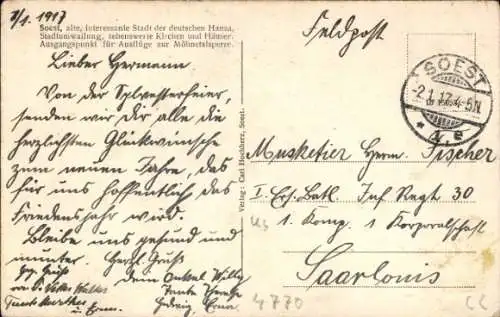 1/1. 1917
Soest, alte, interessante Stadt der deutschen Hansa,
Stadtumwallung, sehenswerte Kirchen und Häuser.
Ausgangspunkt für Ausflüge zur Möhnetalsperre.
Lieber Hermann!
Von der Sylvesterfeier,
senden wir Dir alle die
herzlichsten Glückwünsche
zum neuen Jahre, das
für uns hoffentlich das
Friedensjahr wird.
Bleibe uns gesund und
munter. Herzl. Grüße
dein Onkel Willy
Tante
Hedwig Erna
Verlag: Carl Hochherz, Soest.
Feldpost
SOEST
-2.1.17.4-5N
Musketier Herm. Fischer
I. Ers. Batl. Inf. Regt 30
1. Komp. 1 Korporalschaft
Saarlouis
4770